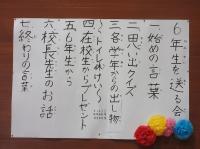 ６年生を送る会
一 始めの言葉
二 思い出クイズ
三 各学年からの出し物
四 在校生からプレゼント
五 ６年生から
六 校長先生のお話
七 終わりの言葉